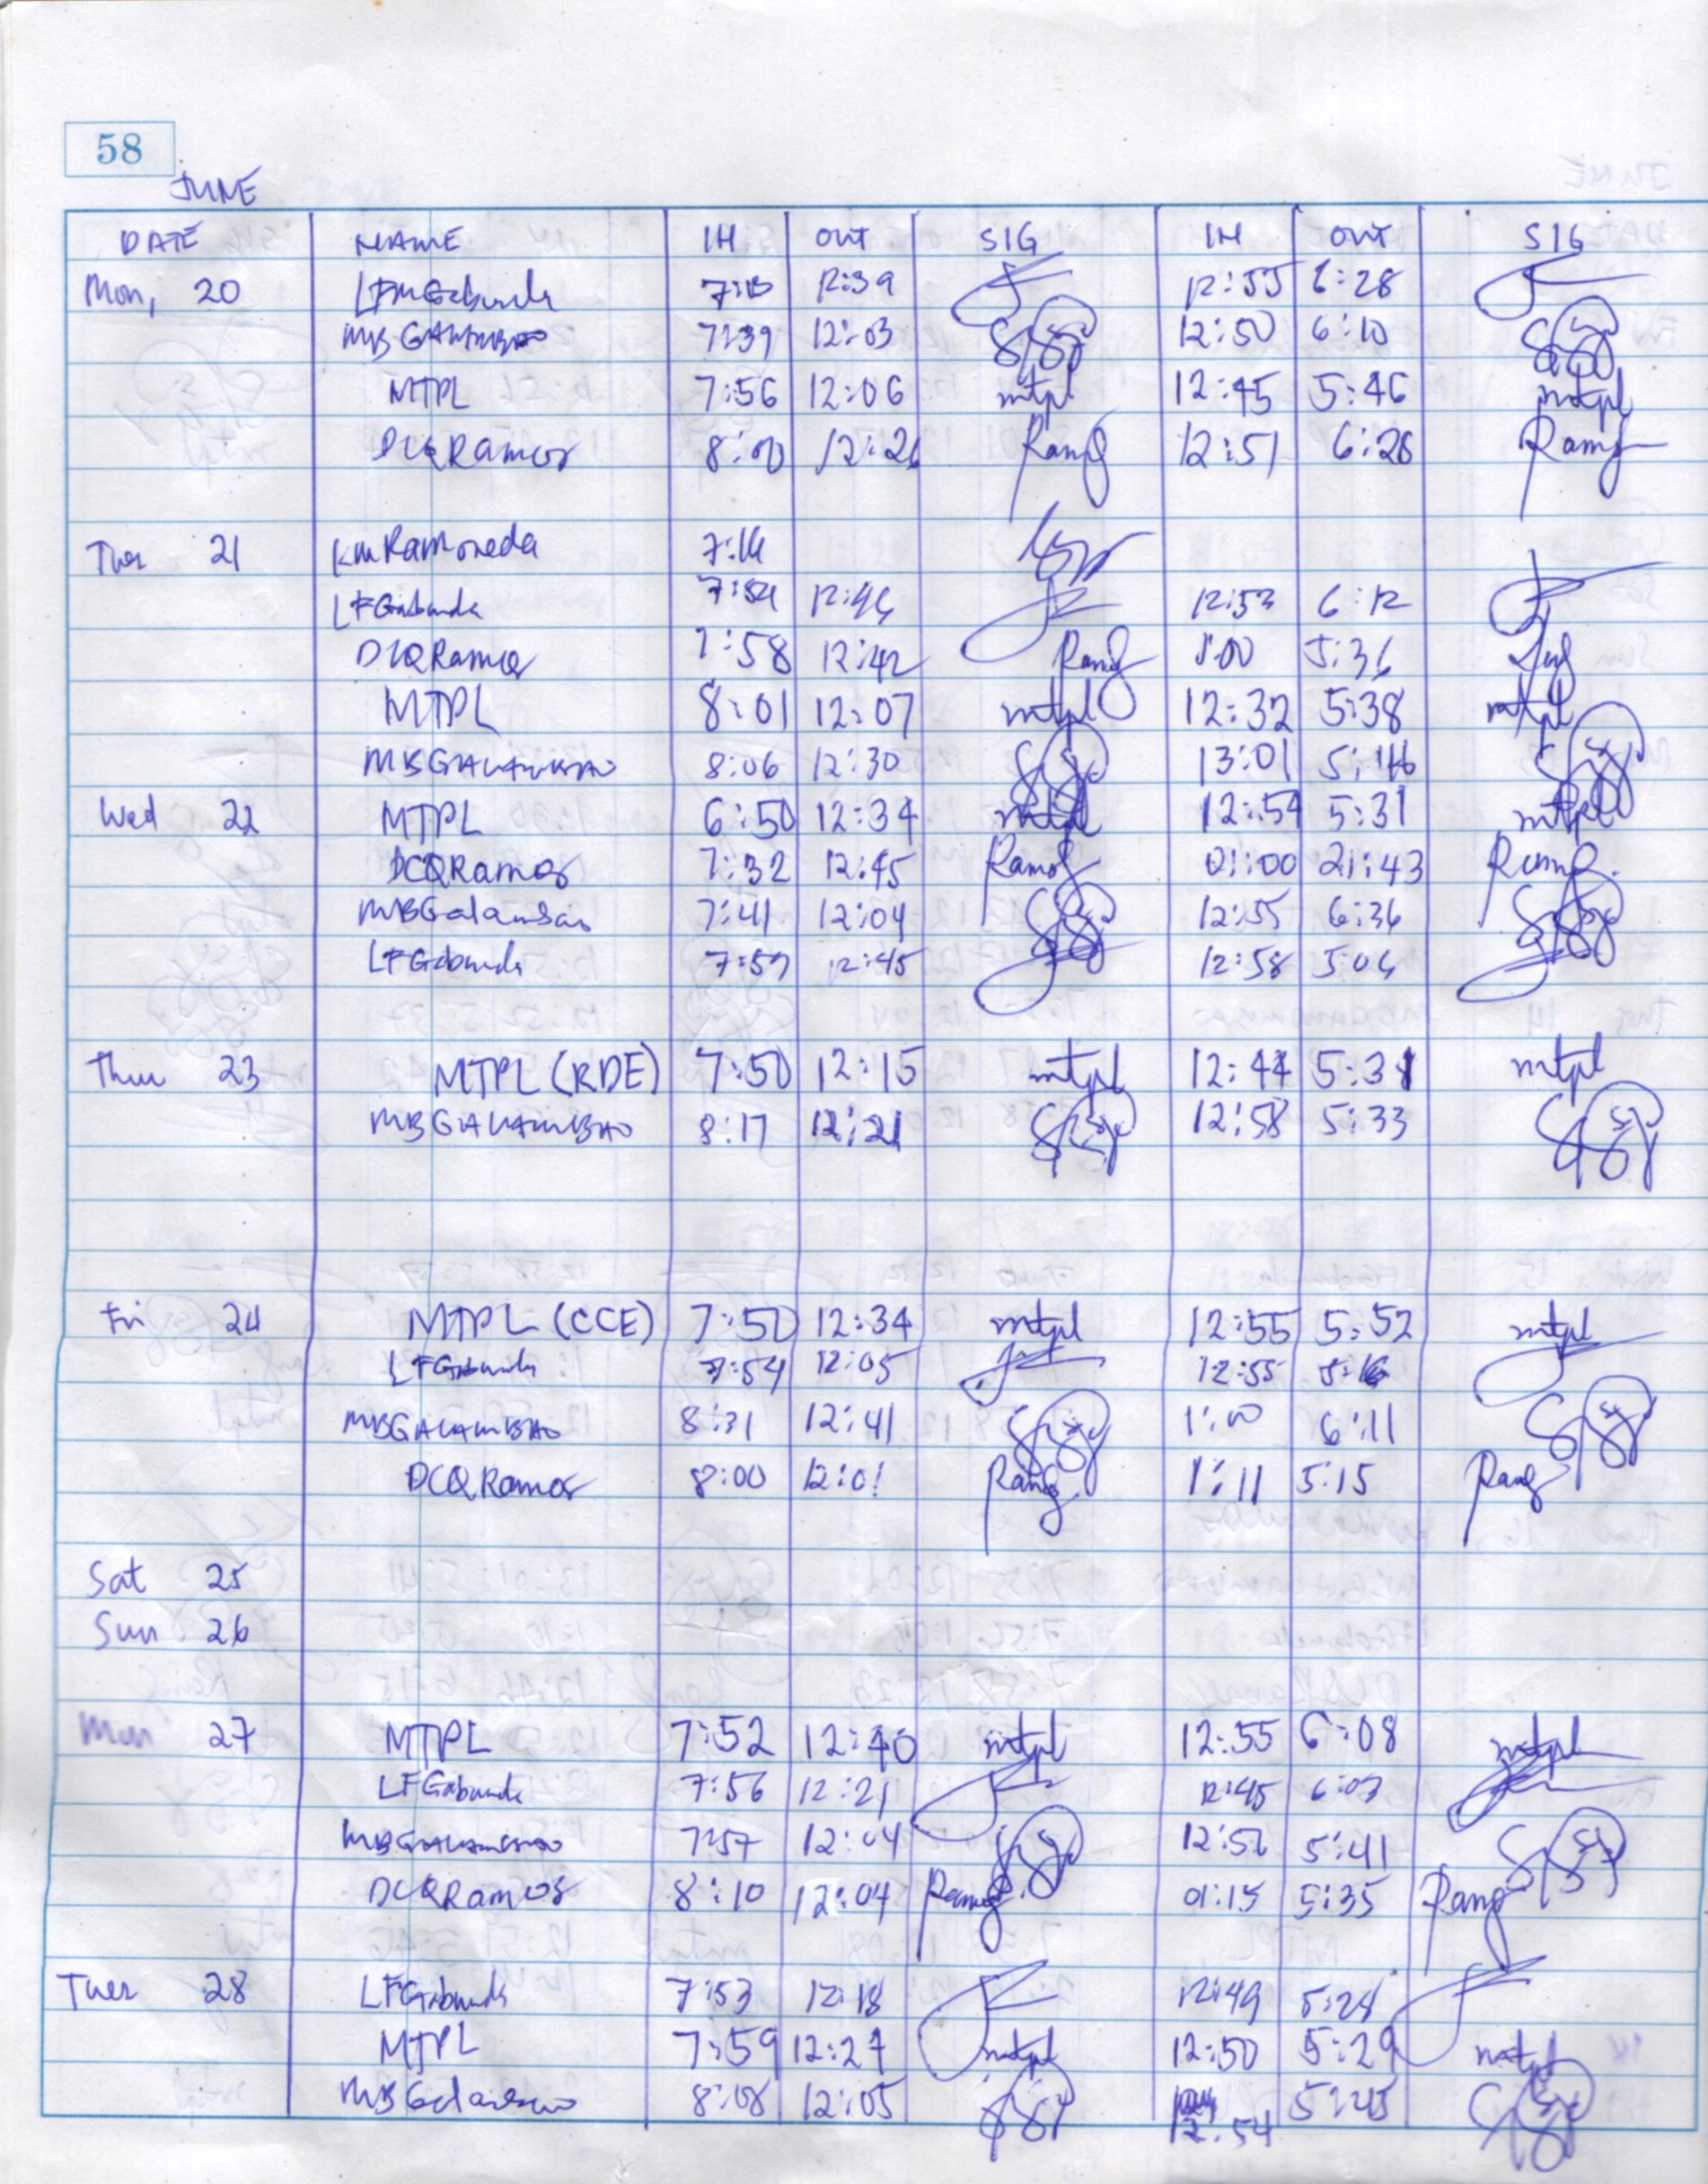 58
JUNE
DATE NAME IN OUT SIG IN OUT SIG
Mon, 20 LFMGabunda 12:39 12:55 6:28
MBGALAMBAO 7:39 12:03 12:50 6:10
MTPL 7:56 12:06 mtpl 12:45 5:46 mtpl
DCQRamos 8:00 12:26 Ramos 12:51 6:28 Ramos
Tue 21 KMRamoneda 7:14
LFGabunda 7:54 12:46 12:53 6:12
DCQRamos 7:58 12:42 Ramos 1:00 5:36
MTPL 8:01 12:07 mtpl 12:32 5:38 mtpl
MBGALAMBAO 8:06 12:30 13:01 5:46
Wed 22 MTPL 6:50 12:34 mtpl 12:54 5:31 mtpl
DCQRamos 7:32 12:45 Ramos 01:00 21:43 Ramos
MBGalambao 7:41 12:04 12:55 6:36
LFGabunda 7:57 12:45 12:58 5:06
Thu 23 MTPL (RDE) 7:50 12:15 mtpl 12:44 5:31 mtpl
MBGALAMBAO 8:17 12:21 12:58 5:33
Fri 24 MTPL (CCE) 7:50 12:34 mtpl 12:55 5:52 mtpl
LFGabunda 7:54 12:05 12:55 5:16
MBGALAMBAO 8:31 12:41 1:00 6:11
DCQRamos 8:00 12:01 Ramos 1:11 5:15 Ramos
Sat 25
Sun 26
Mon 27 MTPL 7:52 12:40 mtpl 12:55 6:08 mtpl
LFGabunda 7:56 12:21 12:45 6:03
MBGALAMBAO 7:57 12:04 12:56 5:41
DCQRamos 8:10 12:04 Ramos 01:15 5:35 Ramos
Tues 28 LFGabunda 7:53 12:18 12:49 5:28
MTPL 7:59 12:27 mtpl 12:50 5:29 mtpl
MBGalambao 8:08 12:05 12:54 5:45